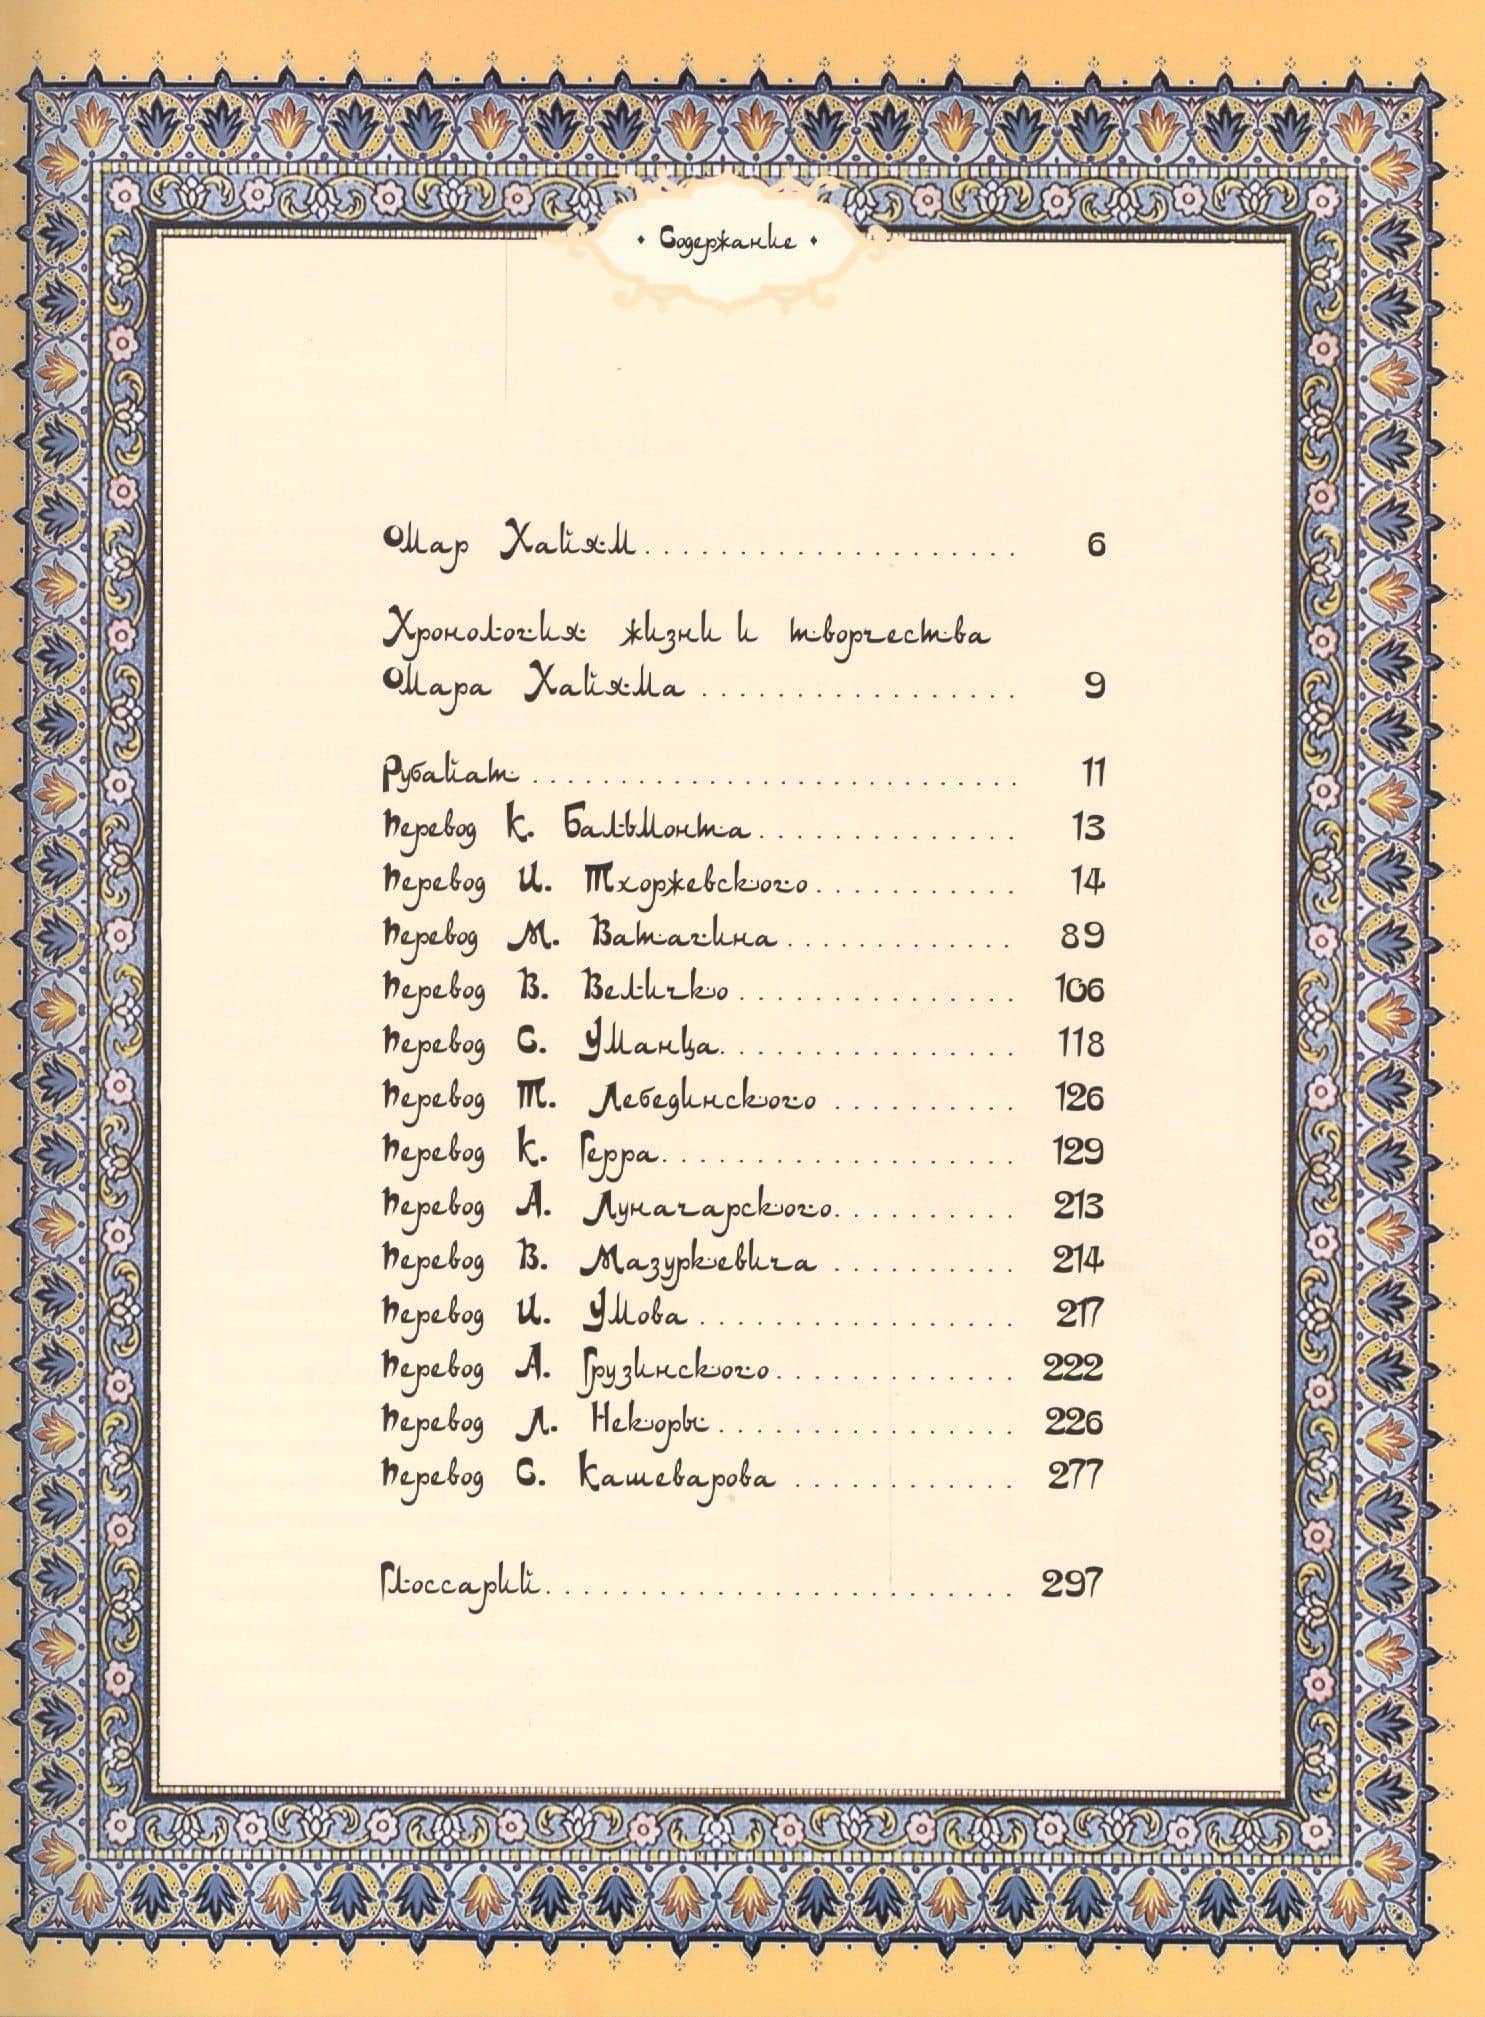 • Содержание •
Омар Хайям. . . . . . . . . . . . . . . . . . . . 6
Хронология жизни и творчества
Омара Хайяма . . . . . . . . . . . . . . . . . 9
Рубайат . . . . . . . . . . . . . . . . . . . . . . . . . . 11
Перевод К. Бальмонта. . . . . . . . . . . . . . 13
Перевод И. Тхоржевского. . . . . . . . . . . 14
Перевод М. Ватагина. . . . . . . . . . . . . 89
Перевод В. Величко . . . . . . . . . . . . . . . 106
Перевод С. Уманца. . . . . . . . . . . . . . . . 118
Перевод Т. Лебединского . . . . . . . . . . 126
Перевод К. Герра. . . . . . . . . . . . . . . . . . . 129
Перевод А. Луначарского. . . . . . . . . . 213
Перевод В. Мазуркевича . . . . . . . . . . 214
Перевод И. Умова . . . . . . . . . . . . . . . . . 217
Перевод А. Грузинского. . . . . . . . . . . . . 222
Перевод Л. Некоры. . . . . . . . . . . . . . . . 226
Перевод С. Кашеварова . . . . . . . . . . . . 277
Глоссарий. . . . . . . . . . . . . . . . . . . . . . . . . 297